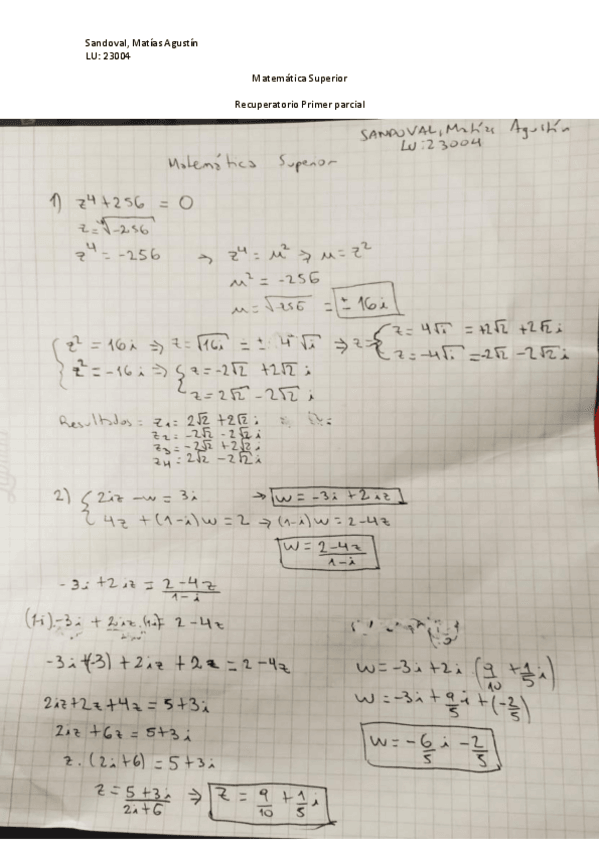 Sandoval, Matías Agustín
LU: 23004
Matemática Superior
Recuperatorio Primer parcial
SANDOVAL, Matías Agustín
LU: 23004
Matemática Superior
1) z⁴ + 256 = 0
z = ⁴√-256
z⁴ = -256 → z⁴ = u² ⇒ u = z²
u² = -256
u = √-256 = ± 16i
z² = 16i ⇒ z = √16i = ± 4 √i ⇒ z = { z = 4√i = +2√2 + 2√2 i
z = -4√i = -2√2 - 2√2 i
z² = -16i ⇒ { z = -2√2 + 2√2 i
z = 2√2 - 2√2 i
Resultados = z₁ = 2√2 + 2√2 i
z₂ = -2√2 - 2√2 i
z₃ = -2√2 + 2√2 i
z₄ = 2√2 - 2√2 i
2) { 2iz - w = 3i → w = -3i + 2iz
4z + (1-i)w = 2 → (1-i)w = 2-4z
w = (2-4z)/(1-i)
-3i + 2iz = (2-4z)/(1-i)
(1-i).-3i + 2iz.(1-i) = 2-4z
-3i+(-3) + 2iz + 2z = 2-4z
2iz + 2z + 4z = 5+3i
2iz + 6z = 5+3i
z.(2i+6) = 5+3i
z = (5+3i)/(2i+6) ⇒ z = 9/10 + 1/5 i
w = -3i + 2i (9/10 + 1/5 i)
w = -3i + 9/5 i + (-2/5)
w = -6/5 i - 2/5